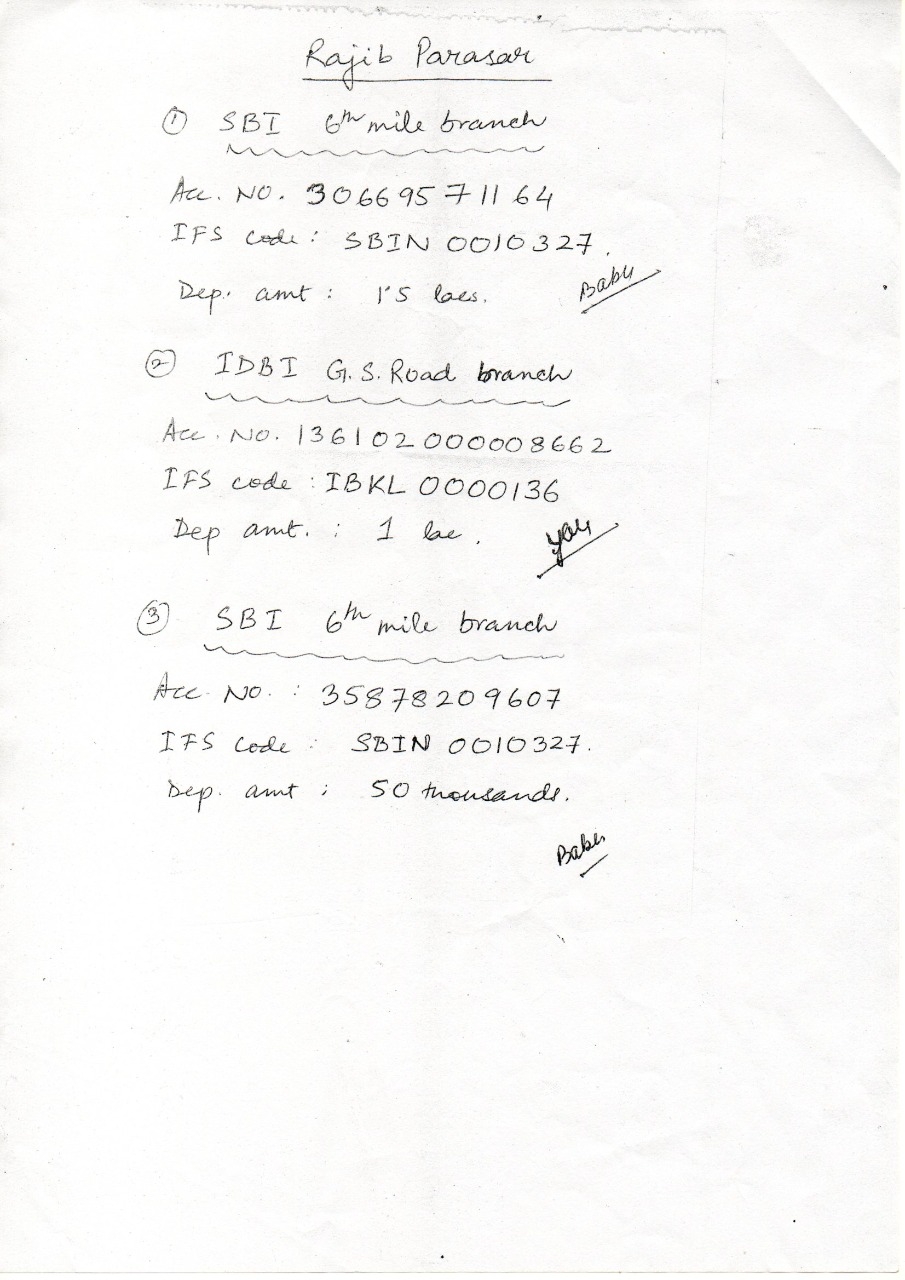 Rajib Parasar
① SBI 6th mile branch
Acc. NO. 30669571164
IFS code : SBIN 0010327.
Dep. amt : 1.5 lacs.
Baby
② IDBI G.S. Road branch
Acc. NO. 136102000008662
IFS code : IBKL 0000136
Dep amt. : 1 lac.
You
③ SBI 6th mile branch
Acc. No. : 35878209607
IFS Code : SBIN 0010327.
Dep. amt : 50 thousands.